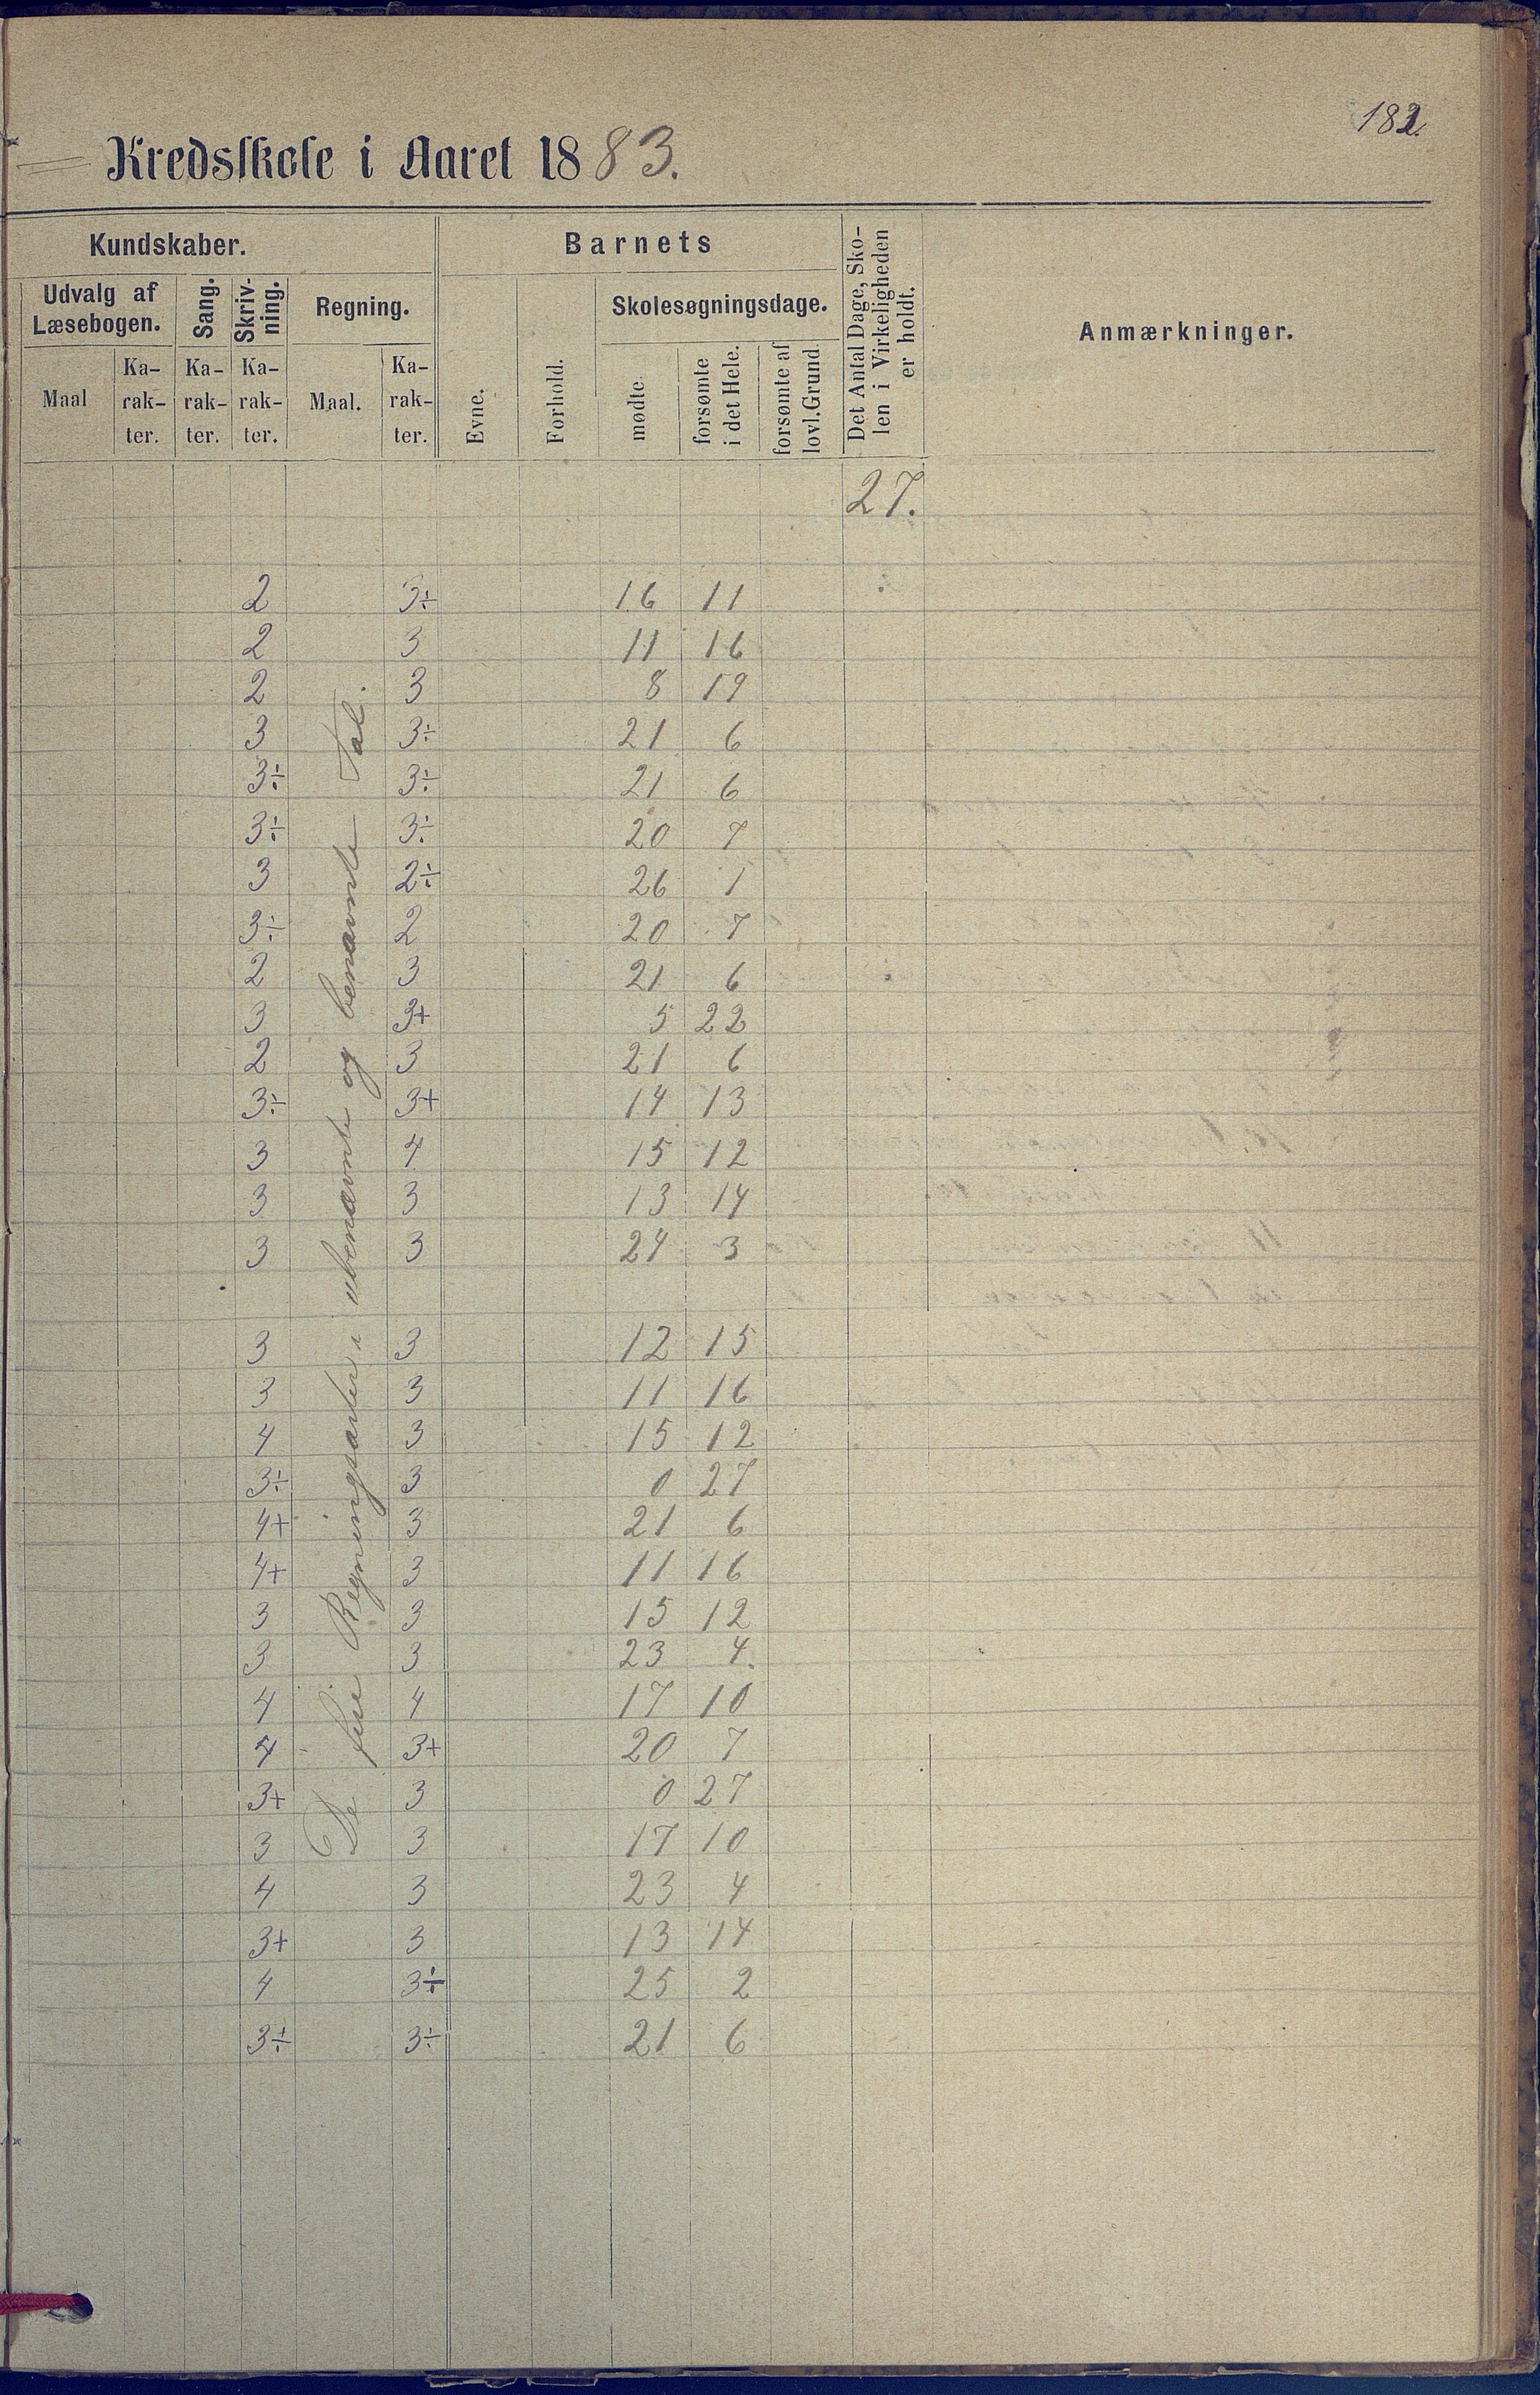 182.
Kredsskole i Aaret 1883.
Kundskaber. Barnets Det Antal Dage, Sko-len i Virkeligheden er holdt. Anmærkninger.
Udvalg af Læsebogen. Sang. Skriv-ning. Regning. Evne. Forhold. Skolesøgningsdage.
Maal Ka-rak-ter. Ka-rak-ter. Ka-rak-ter. Maal. Ka-rak-ter. mødte. forsømte i det Hele. forsømte af lovl. Grund.
27.
De fire Regningsarter i ubenævnte og benævnte Tal.
2 3÷ 16 11
2 3 11 16
2 3 8 19
3 3÷ 21 6
3÷ 3÷ 21 6
3÷ 3÷ 20 7
3 2÷ 26 1
3÷ 2 20 7
2 3 21 6
3 3+ 5 22
2 3 21 6
3÷ 3+ 14 13
3 4 15 12
3 3 13 14
3 3 24 3
3 3 12 15
3 3 11 16
4 3 15 12
3÷ 3 0 27
4+ 3 21 6
4+ 3 11 16
3 3 15 12
3 3 23 4.
4 4 17 10
4 3+ 20 7
3+ 3 0 27
3 3 17 10
4 3 23 4
3+ 3 13 14
4 3÷ 25 2
3÷ 3÷ 21 6